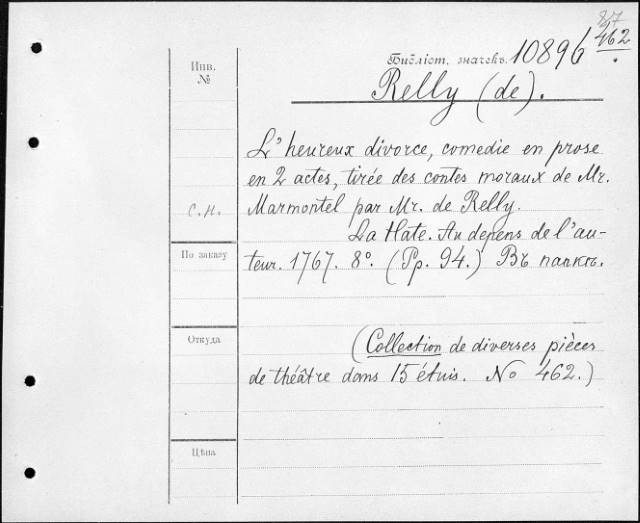 87
462
Инв.
№
Библіот. значекъ. 10896
Relly (de).
L'heureux divorce, comedie en prose
en 2 actes, tirée des contes moraux de Mr.
С.Н. Marmontel par Mr. de Relly.
La Hate. Au depens de l'au-
По заказу
teur. 1767. 8°. (Pp. 94.) Въ папкѣ.
Откуда
(Collection de diverses pièces
de théâtre dans 15 étuis. No 462.)
Цѣна